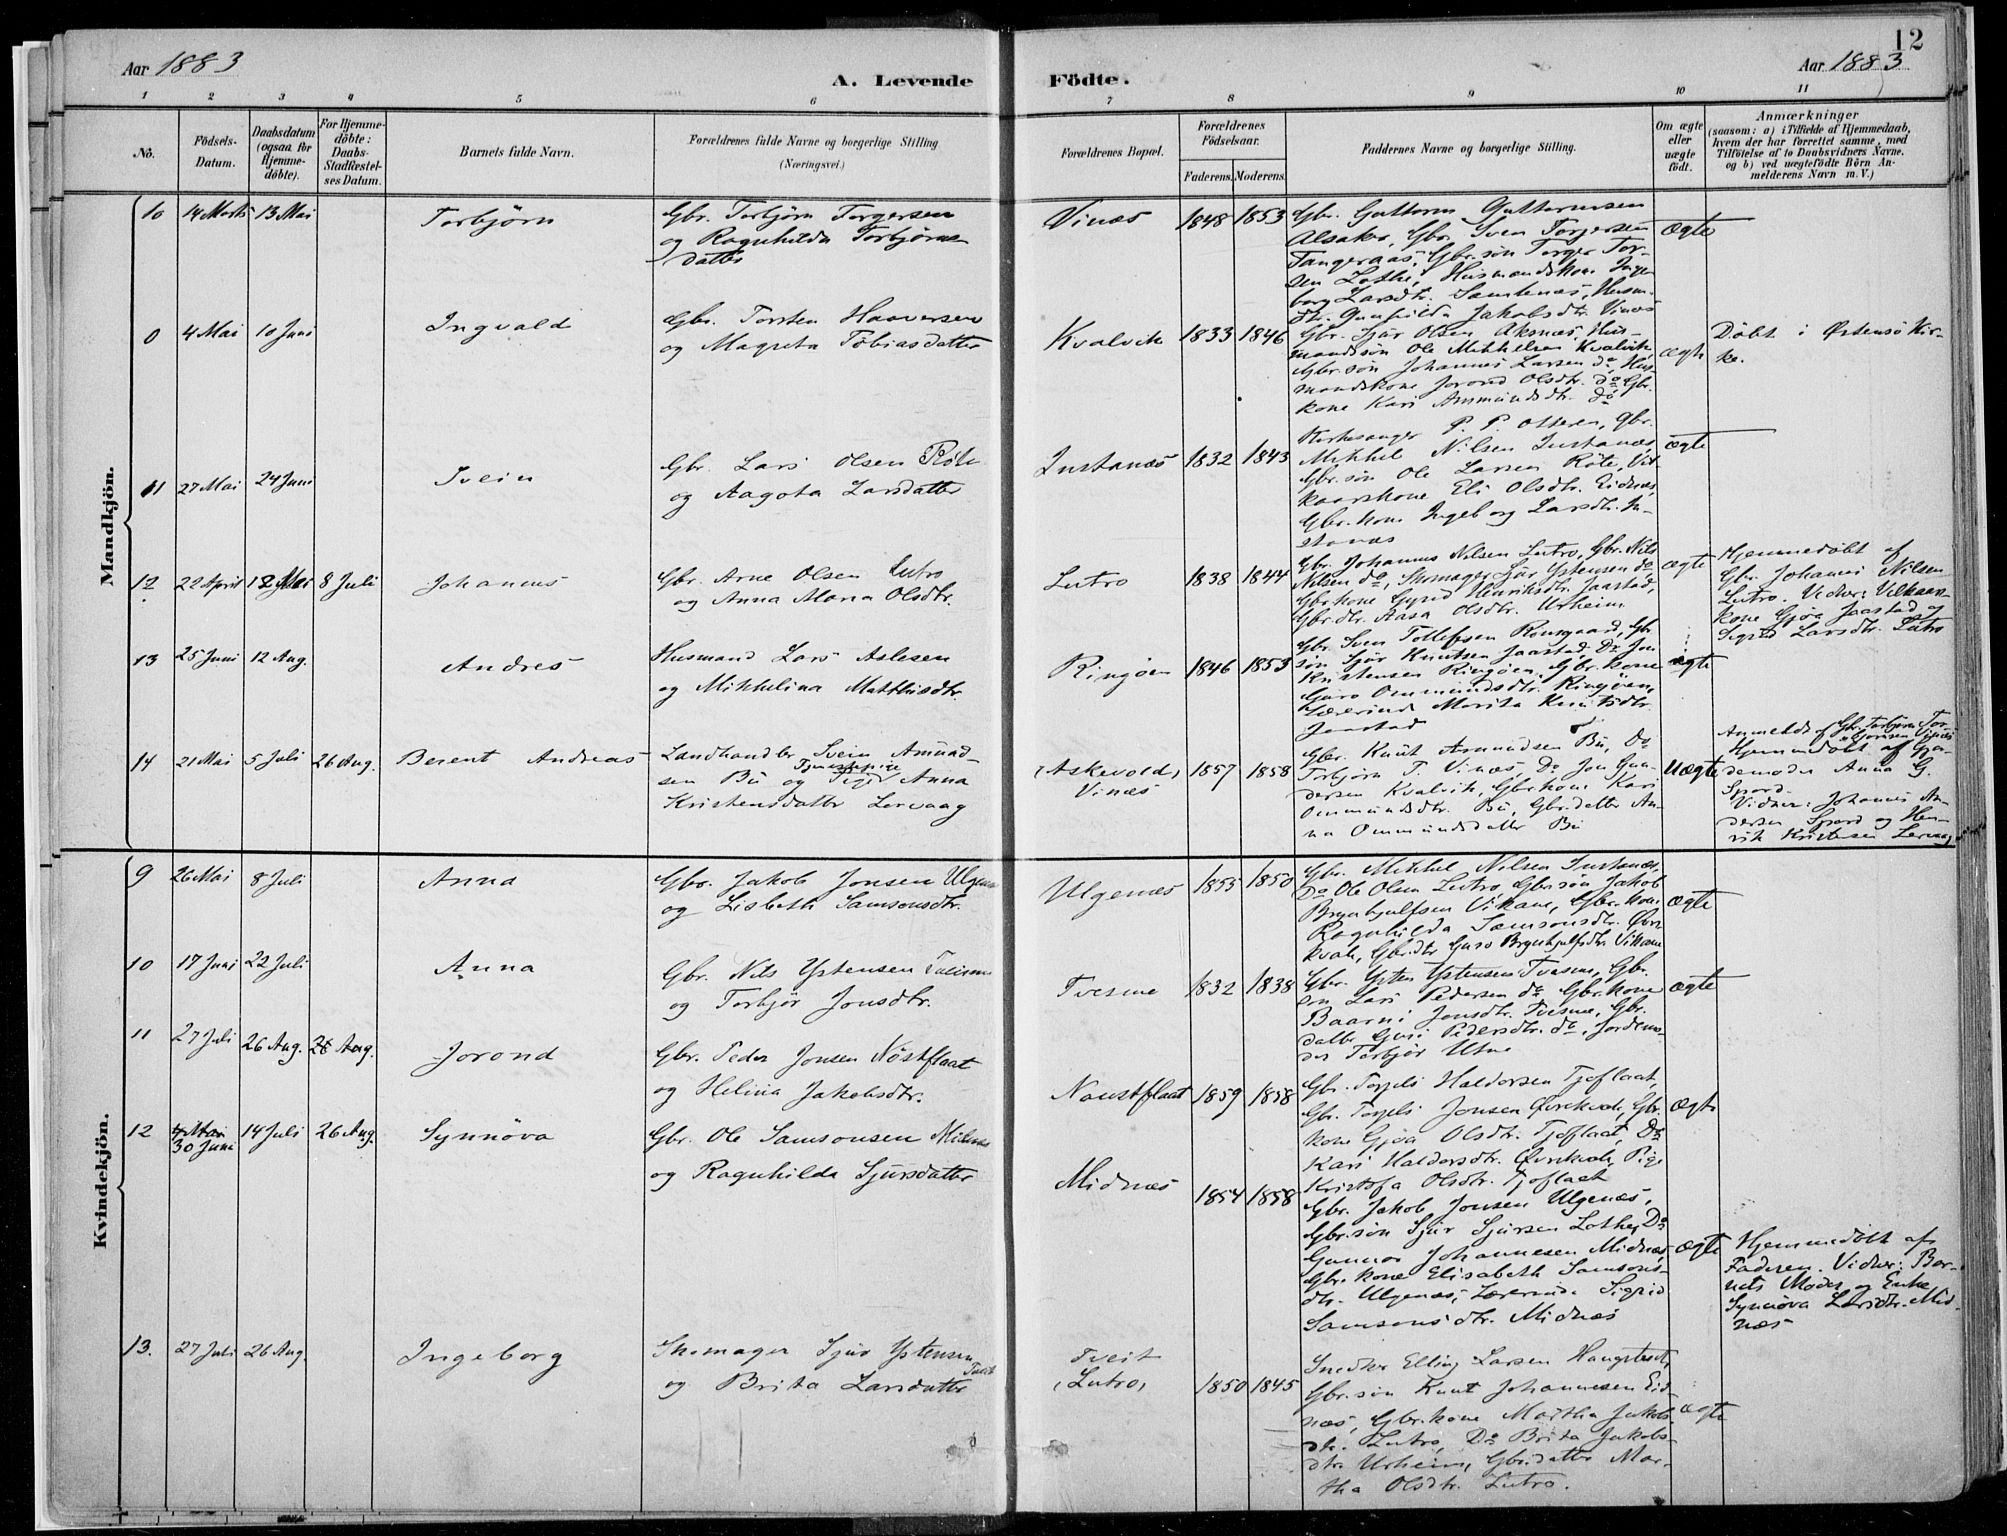 12
Aar 1883
Aar 1883
A. Levende Födte.
1 2 3 4 5 6 7 8 9 10 11
No.
Födsels-Datum.
Daabsdatum (ogsaa for Hjemme-döbte).
For Hjemme-döbte: Daabs-Stadfæstel-ses Datum.
Barnets fulde Navn.
Forældrenes fulde Navne og borgerlige Stilling
(Næringsvei.)
Forældrenes Bopæl.
Forældrenes Födselsaar.
Faderens. Moderens.
Faddernes Navne og borgerlige Stilling.
Om ægte eller uægte födt.
Anmærkninger
(saasom: a) i Tilfælde af Hjemmedaab,
hvem der har forrettet samme, med
Tilföielse af to Daabsvidners Navne.
og b) ved uægtefödte Börn An-
melderens Navn m. V.)
Mandkjön.
10 14 Marts 13 Mai Torbjörn
Gbr. Torbjörn Torgersen
og Ragnhilda Torbjörns
datter
Vinæs 1848 1853
Gbr. Guttorm Guttormsen
Alsaker, Gbr. Sven Torgersen
Tangeraas, Gbr.sön Torger Tor-
sen Lothe, Husmandskone Inge-
borg Larsdtr. Samlenæs, Husm.
dtr. Gunhilda Jakobsdtr. Vinæs
ægte
0 4 Mai 10 Juni Ingvald
Gbr. Torsten Haaversen
og Magreta Tobiasdatter
Kvalvik 1833 1846
Gbr. Sjur Olsen Aksnæs, Hus-
mandssön Ole Mikkelsen Kvalvik,
Gbr.sön Johannes Larsen do, Hus-
mandskone Jorond Olsdtr. do, Gbr.
kone Kari Amundsdtr. do
ægte
Döbt i Östensö Kir-
ke.
11 27 Mai 24 Juni Svein
Gbr. Lars Olsen Röte
og Aagota Larsdatter
Instanæs 1832 1843
Kirkesanger P. P. Otteren, Gbr.
Mikkel Nilsen Instanæs,
Gbr.sön Ole Larsen Röte, Vil-
kaarskone Eli Olsdtr. Eidnæs,
Gbr.kone Ingeborg Larsdtr. In-
stanæs
ægte
12 22 April 12 Mai 8 Juli Johannes
Gbr. Arne Olsen Lutro
og Anna Maria Olsdtr.
Lutro 1838 1844
Gbr. Johannes Nilsen Lutro, Gbr. Nils
Nilsen do, Skomager Sjur Ystensen do
Gbr.kone Gyrid Henriksdtr. Jaastad,
Gbr.dtr. Aasa Olsdtr. Urheim
ægte
Hjemmedöbt af
Gbr. Johannes Nilsen
Lutro. Vidner: Vilkaars-
kone Gjöa Jaastad og
Sigrid Larsdtr. Lutro
13 25 Juni 12 Aug. Andres
Husmand Lars Aslesen
og Mikkelina Matthisdtr.
Ringöen 1846 1853
Gbr. Sven Tollefsen Gbr
sön Sjur Knutsen Jaastad, Do Jon
Kristensen Ringöen, Gbr.kone
Guro Ommundsdtr. Ringöen,
Lærerinde Marita Knutsdtr.
Jaastad
ægte
14 21 Mai 5 Juli 26 Aug. Berent Andreas
Landhandler Svein Amund-
sen Bu og Tjenestepige Anna
Kristensdatter Lervaag
(Askevold)
Vinæs
1857 1858
Gbr. Knut Amundsen Bu, Do
Torbjörn T. Vinæs, Do Jon Gun-
dersen Kvalvik, Gbr.kone Kari
Ommundsdtr. Bu, Gbr.datter An-
na Ommundsdatter Bu
Uægte
Anmeldt af Gbr. Torbjörn Tor-
Hjemmedöbt af Gjor-
demoder Anna G.
Spord.
Vidner: Johannes An-
dersen Spord og Hen-
rik Kristensen Lervaag
Kvindekjön.
9 26 Mai 8 Juli Anna
Gbr. Jakob Jonsen Ulgenæs
og Lisbeth Samsonsdtr.
Ulgenæs 1855 1850
Gbr. Mikkel Nilsen Instanæs,
Do Ole Olsen Lutro, Gbr.sön Jakob
Brynhjulfsen Vikane, Gbr.kone
Ragnhilda Samsonsdtr. Övre
kvale, Gbr.dtr. Guro Brynhjulfsdtr. Vikane
ægte
10 17 Juni 22 Juli Anna
Gbr. Nils Ystensen Tveisme
og Torbjör Jonsdtr.
Tveisme 1832 1838
Gbr. Ysten Ystensen Tveisme, Gbr.
sön Lars Pedersen do Gbr.kone
Baarni Jonsdtr. Tveisme, Gbr.
datter Guri Pedersdtr. do, Jordemo-
der Torbjör Utne
ægte
11 27 Juli 26 Aug. 26 Aug. Jorond
Gbr. Peder Jonsen Nöstflaat
og Helina Jakobsdtr.
Naustflaat 1859 1858
Gbr. Torjels Haldorsen Tjoflaat,
Gbr. Torjels Jonsen Övrekvale, Gbr.
kone Gjöa Olsdtr. Tjoflaat, Do
Kari Haldorsdtr. Övrekvale, Pige
Kristofa Olsdtr. Tjoflaat
ægte
12 4 Mai
30 Juni 14 Juli 26 Aug. Synnöva
Gbr. Ole Samsonsen Midnæs
og Ragnhilda Sjursdatter
Midnæs 1854 1858
Gbr. Jakob Jonsen Ulgenæs,
Gbr.sön Sjur Sjursen Lothe, Do
Gunnar Johannesen Midnæs,
Gbr.kone Elisabeth Samsons-
dtr. Ulgenæs, Lærerinde Sigrid
Samsonsdtr. Midnæs
ægte
Hjemmedöbt af
Faderen. Vidner: Bar-
nets Moder og Enke
Synnöva Larsdtr. Mid-
næs
13. 27 Juli 26 Aug. Ingeborg
Skomager Sjur Ystensen Tveit
og Brita Larsdatter
Tveit
(Lutro)
1850 1845
Snedker Elling Larsen Haugstveit,
Gbr.sön Knut Johannesen Eid-
næs, Gbr.kone Martha Jakobs
dtr. Lutro, Do Brita Jakobs-
dtr. Urheim, Gbr.datter Mar-
tha Olsdtr. Lutro.
ægte